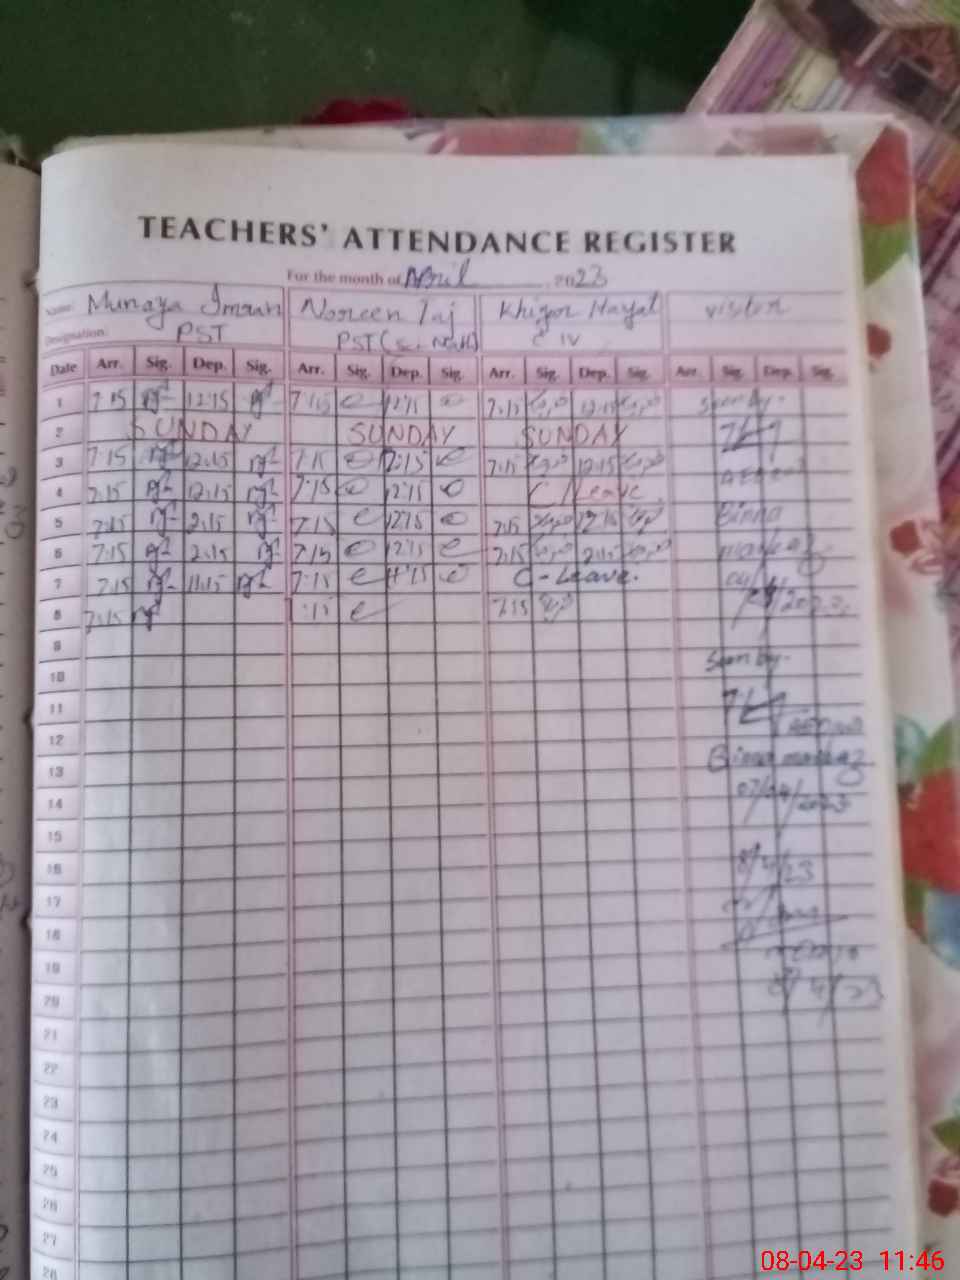 TEACHERS' ATTENDANCE REGISTER
For the month of April 2023
Name: Munaza Imran Noreen Taj Khizar Hayat visitor
Designation: PST PST C IV
Date Arr. Sig. Dep. Sig. Arr. Sig. Dep. Sig. Arr. Sig. Dep. Sig. Arr. Sig. Dep. Sig.
1 7:15 12:15 7:15 12:15 7:15 12:15 Seen by.
2 SUNDAY SUNDAY SUNDAY
3 7:15 12:15 7:15 12:15 7:15 12:15
4 7:15 12:15 7:15 12:15 C/Leave
5 7:15 2:15 7:15 12:15 7:15 12:15 Binna
6 7:15 2:15 7:15 12:15 7:15 2:15 markaz
7 7:15 11:15 7:15 11:15 C-Leave.
8 7:15 7:15 7:15
9
10 Seen by.
11
12
13 Binna markaz
14 07/04/2023
15
16 8/4/23
17
18
19
20 8/4/23
21
22
23
24
25
26
27
28
08-04-23 11:46